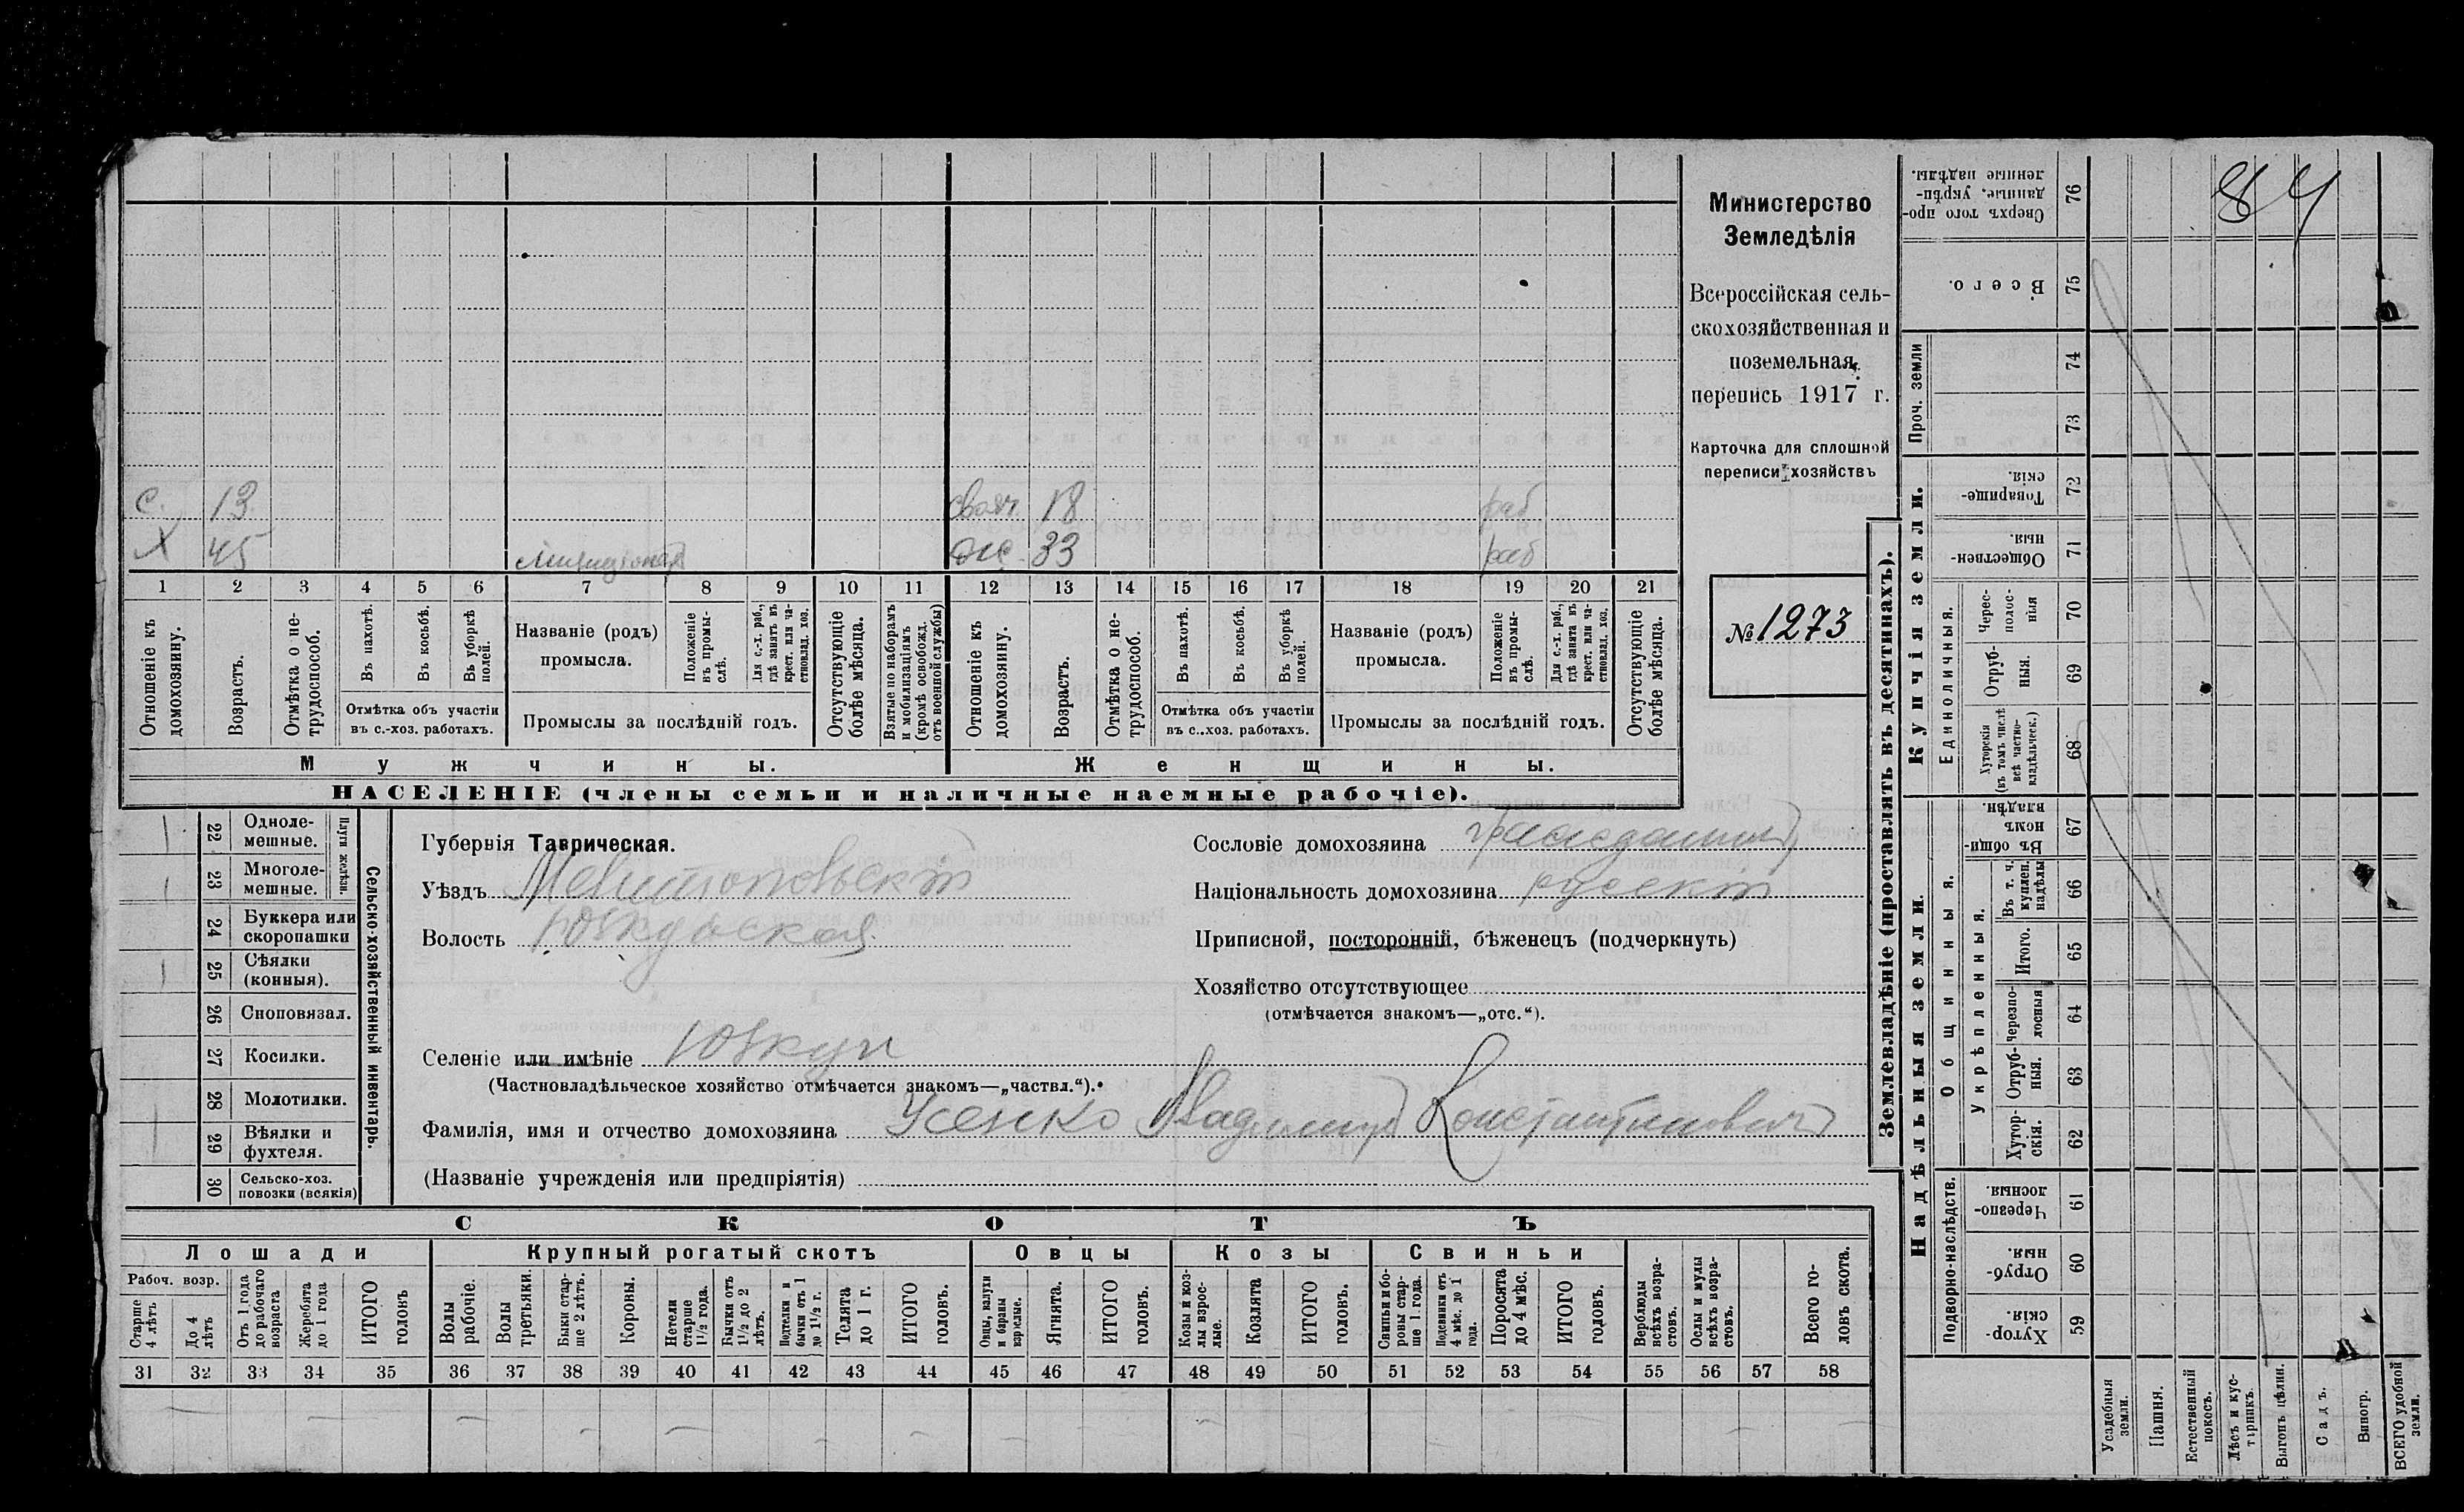 84
Министерство
Земледѣлія
Всероссійская сель-
скохозяйственная и
поземельная
перепись 1917 г.
Карточка для сплошной
переписи хозяйствъ
№ 1273
с. 13 18 раб
Х 45 33 раб
1 2 3 4 5 6 7 8 9 10 11 12 13 14 15 16 17 18 19 20 21
Отношеніе къ домохозяину.
Возрастъ.
Отмѣтка о не-трудоспособ.
Въ пахотѣ.
Въ косьбѣ.
Въ уборкѣ полей.
Отмѣтка объ участіи
въ с.-хоз. работахъ.
Названіе (родъ)
промысла.
Положеніе въ промы-слѣ.
Для с.-х. раб., гдѣ занятъ въ крест. или ча-стновлад. хоз.
Промыслы за послѣдній годъ.
Отсутствующіе болѣе мѣсяца.
Взятые по наборамъ и мобилизаціямъ (кромѣ освобожд. отъ военной службы)
Отношеніе къ домохозяину.
Возрастъ.
Отмѣтка о не-трудоспособ.
Въ пахотѣ.
Въ косьбѣ.
Въ уборкѣ полей.
Отмѣтка объ участіи
въ с.-хоз. работахъ.
Названіе (родъ)
промысла.
Положеніе въ промы-слѣ.
Для с.-х. раб., гдѣ занята въ крест. или ча-стновлад. хоз.
Промыслы за послѣдній годъ.
Отсутствующіе болѣе мѣсяца.
Мужчины. Женщины.
НАСЕЛЕНІЕ (члены семьи и наличные наемные рабочіе).
Сельско-хозяйственный инвентарь.
Плуги желѣзн.
22 Одноле-мешные.
23 Многоле-мешные.
24 Буккера или скоропашки
25 Сѣялки (конныя).
26 Сноповязал.
27 Косилки.
28 Молотилки.
29 Вѣялки и фухтеля.
30 Сельско-хоз. повозки (всякія)
Губернія Таврическая.
Уѣздъ Мелитопольскій
Волость Юзкуйская
Селеніе или имѣніе Юзкуи
(Частновладѣльческое хозяйство отмѣчается знакомъ—„частвл.“).
Сословіе домохозяина гражданинъ
Національность домохозяина русскій
Приписной, посторонній, бѣженецъ (подчеркнуть)
Хозяйство отсутствующее
(отмѣчается знакомъ—„отс.“).
Фамилія, имя и отчество домохозяина Усенко Владимиръ Константиновичъ
(Названіе учрежденія или предпріятія)
СКОТЪ
Лошади Крупный рогатый скотъ Овцы Козы Свиньи
Рабоч. возр.
Старше 4 лѣтъ
До 4 лѣтъ
Отъ 1 года до рабочаго возраста
Жеребята до 1 года
ИТОГО головъ
Волы рабочіе.
Волы третьяки.
Быки стар-ше 2 лѣтъ.
Коровы.
Нетели старше 1½ года.
Бычки отъ 1½ до 2 лѣтъ.
Подтелки и бычки отъ 1 до 1½ г.
Телята до 1 г.
ИТОГО головъ.
Овцы, валухи и бараны взрослые.
Ягнята.
ИТОГО головъ.
Козы и коз-лы взрос-лые.
Козлята
ИТОГО головъ.
Свиньи и бо-ровы стар-ше 1 года.
Подсвинки отъ 4 мѣс. до 1 года.
Поросята до 4 мѣс.
ИТОГО головъ.
Верблюды всѣхъ возра-стовъ.
Ослы и мулы всѣхъ возра-стовъ.
Всего го-ловъ скота.
31 32 33 34 35 36 37 38 39 40 41 42 43 44 45 46 47 48 49 50 51 52 53 54 55 56 57 58
Землевладѣніе (проставлять въ десятинахъ).
Сверхъ того про-данные, укрѣп-ленные надѣлы. 76
Всего. 75
Проч. земли 74 73
Купчія земли.
Товарище-скія. 72
Обществен-ныя. 71
Единоличныя.
Черес-полос-ныя 70
Отруб-ныя. 69
Хуторскія (въ томъ числѣ всѣ частно-владѣльческ.) 68
Надѣльныя земли.
Общинныя.
Въ общи-номъ владѣн. 67
Укрѣпленныя.
Въ т. ч. куплен. надѣлы 66
Итого. 65
Черезпо-лосныя 64
Отруб-ныя. 63
Хутор-скія. 62
Подворно-наслѣдств.
Черезпо-лосныя. 61
Отруб-ныя. 60
Хутор-скія. 59
Усадебныя земли.
Пашня.
Естественный покосъ.
Лѣсъ и кус-тарникъ.
Выгонъ цѣлин.
Садъ.
Виногр.
ВСЕГО удобной земли.